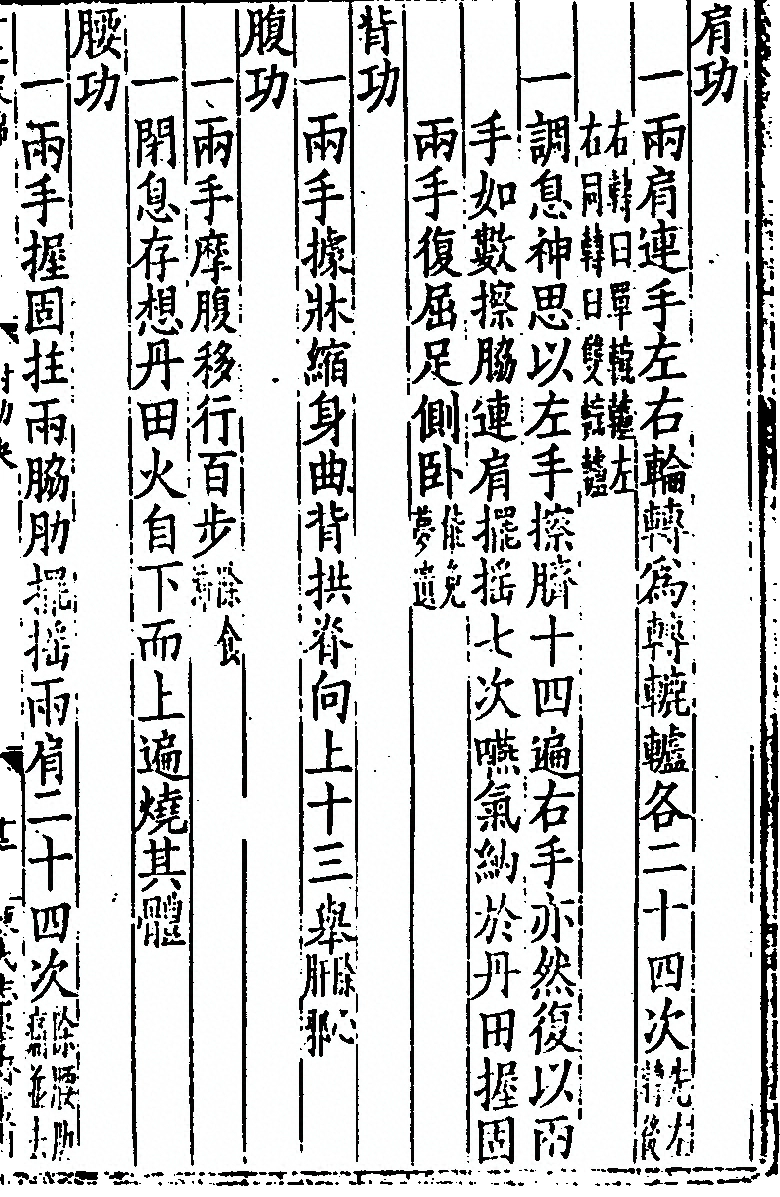 肩功
一兩肩連手左右輪轉為轉轆轤各二十四次先左轉後
右轉曰單轆轤左右同轉曰雙轆轤
一調息神思以左手擦臍十四遍右手亦然復以兩
手如數擦脇連肩擺揺七次嚥氣納於丹田握固
兩手復屈足側卧能免夢遺
背功
一兩手據牀縮身曲背拱脊向上十三舉除心肝邪
腹功
一兩手摩腹移行百步除食滯
一閉息存想丹田火自下而上遍燒其體
腰功
一兩手握固拄兩脇肋擺揺兩肩二十四次除腰肋痛並去